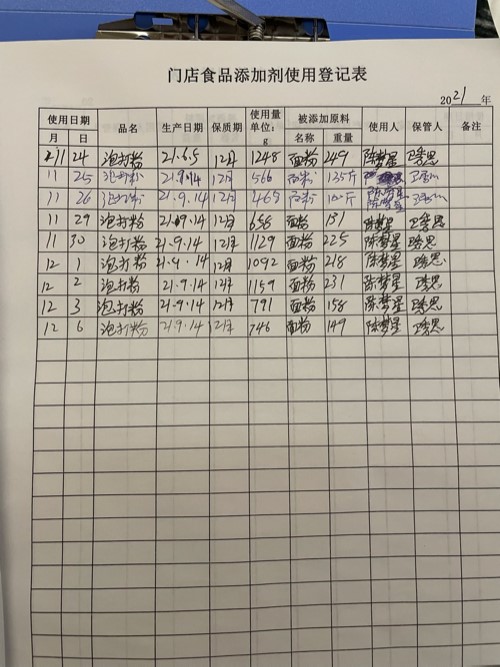 门店食品添加剂使用登记表
2021 年
使用日期 品名 生产日期 保质期 使用量单位：g 被添加原料 使用人 保管人 备注
月 日 名称 重量
11 24 泡打粉 21.6.5 12月 1248 面粉 249 陈梦星
11 25 泡打粉 21.9.14 12月 566 面粉 135斤
11 26 泡打粉 21.9.14 12月 465 面粉 陈梦星
11 29 泡打粉 21.09.14 12月 658 面粉 131 陈梦星
11 30 泡打粉 21.9.14 12月 1129 面粉 225 陈梦星
12 1 泡打粉 21.9.14 12月 1092 面粉 218 陈梦星
12 2 泡打粉 21.9.14 12月 1159 面粉 231 陈梦星
12 3 泡打粉 21.9.14 12月 791 面粉 158 陈梦星
12 6 泡打粉 21.9.14 12月 746 面粉 149 陈梦星